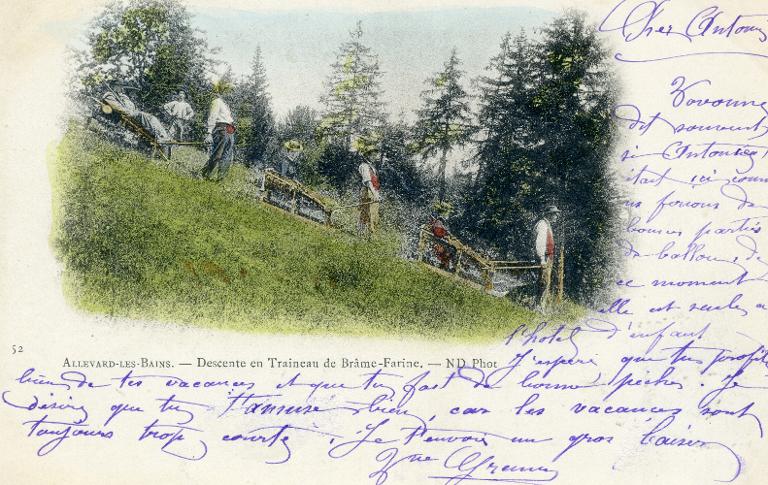 Cher Antonin
Yvonne
dit souvent
si Antonin
était ici comme
nous ferions de
bonnes parties
de ballon, de
ce moment
elle est seule à
l'hotel d'enfant
52
ALLEVARD-LES-BAINS. — Descente en Traineau de Brâme-Farine. — ND Phot
J'espère que tu profite
bien de tes vacances et que tu fait de bonne pêches. Je
désire que tu t'amuse bien, car les vacances sont
toujours trop courte. Je t'envoie un gros baiser